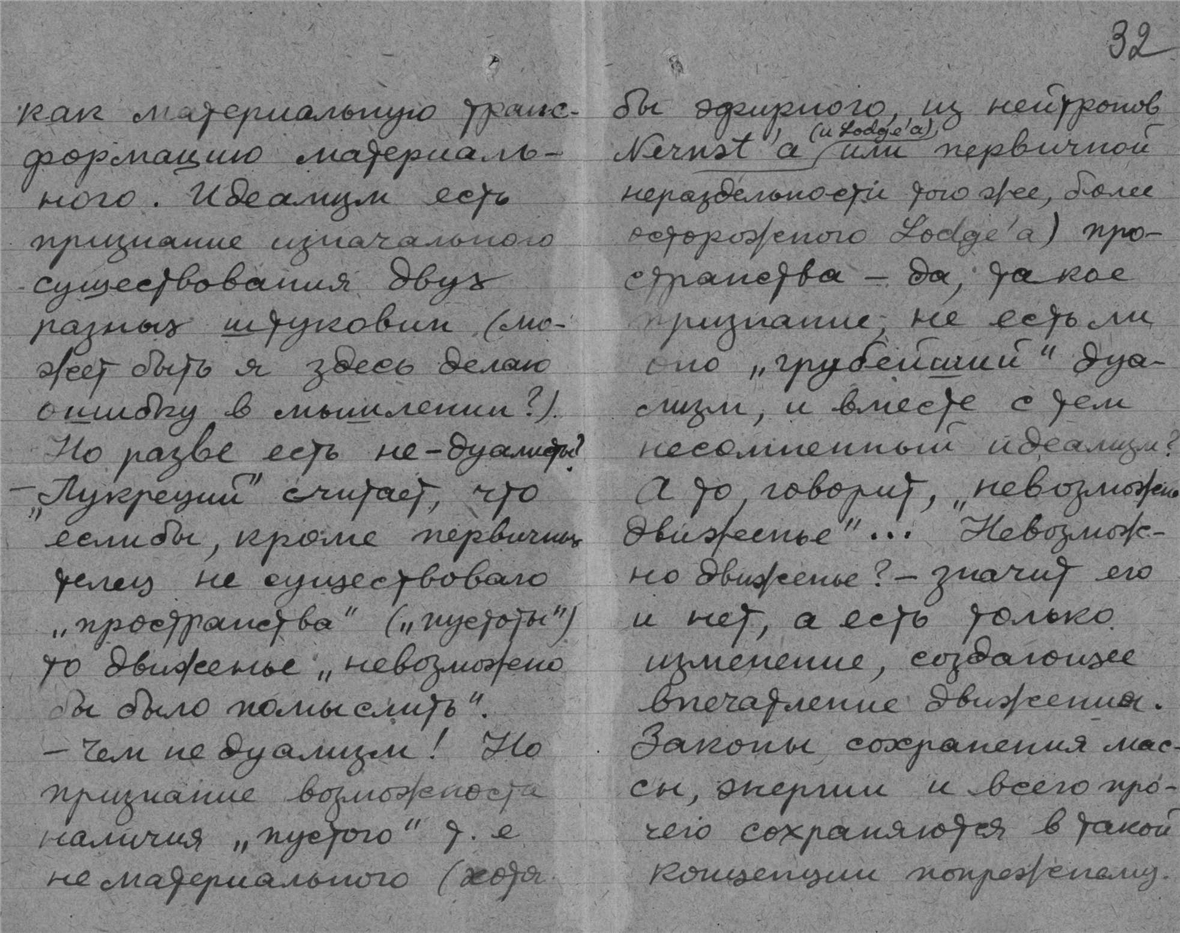 как материальную транс-
формацию материаль-
ного. Идеализм есть
признание изначального
существования двух
разных штуковин (мо-
жет быть я здесь делаю
ошибку в мышлении?).
Но разве есть не-дуалисты?
— „Лукреций" считает, что
еслибы, кроме первичных
телец не существовало
„пространства" („пустоты")
то движенье „невозможно
бы было помыслить".
— Чем не дуализм! Но
признание возможности
наличия „пустого" т. е
нематериального (хотя
32
бы эфирного, из нейтронов
(и Lodge'а)
Nernst'а или первичной
нераздельности того же, более
осторожного Lodge'а) про-
странства — да, такое
признание, не есть ли
оно „грубейший" дуа-
лизм, и вместе с тем
несомненный идеализм?
А то, говорит, „невозможно
движенье"... Невозмож-
но движенье? — значит его
и нет, а есть только
изменение, создающее
впечатление движения.
Законы сохранения мас-
сы, энергии и всего про-
чего сохраняются в такой
концепции попрежнему.